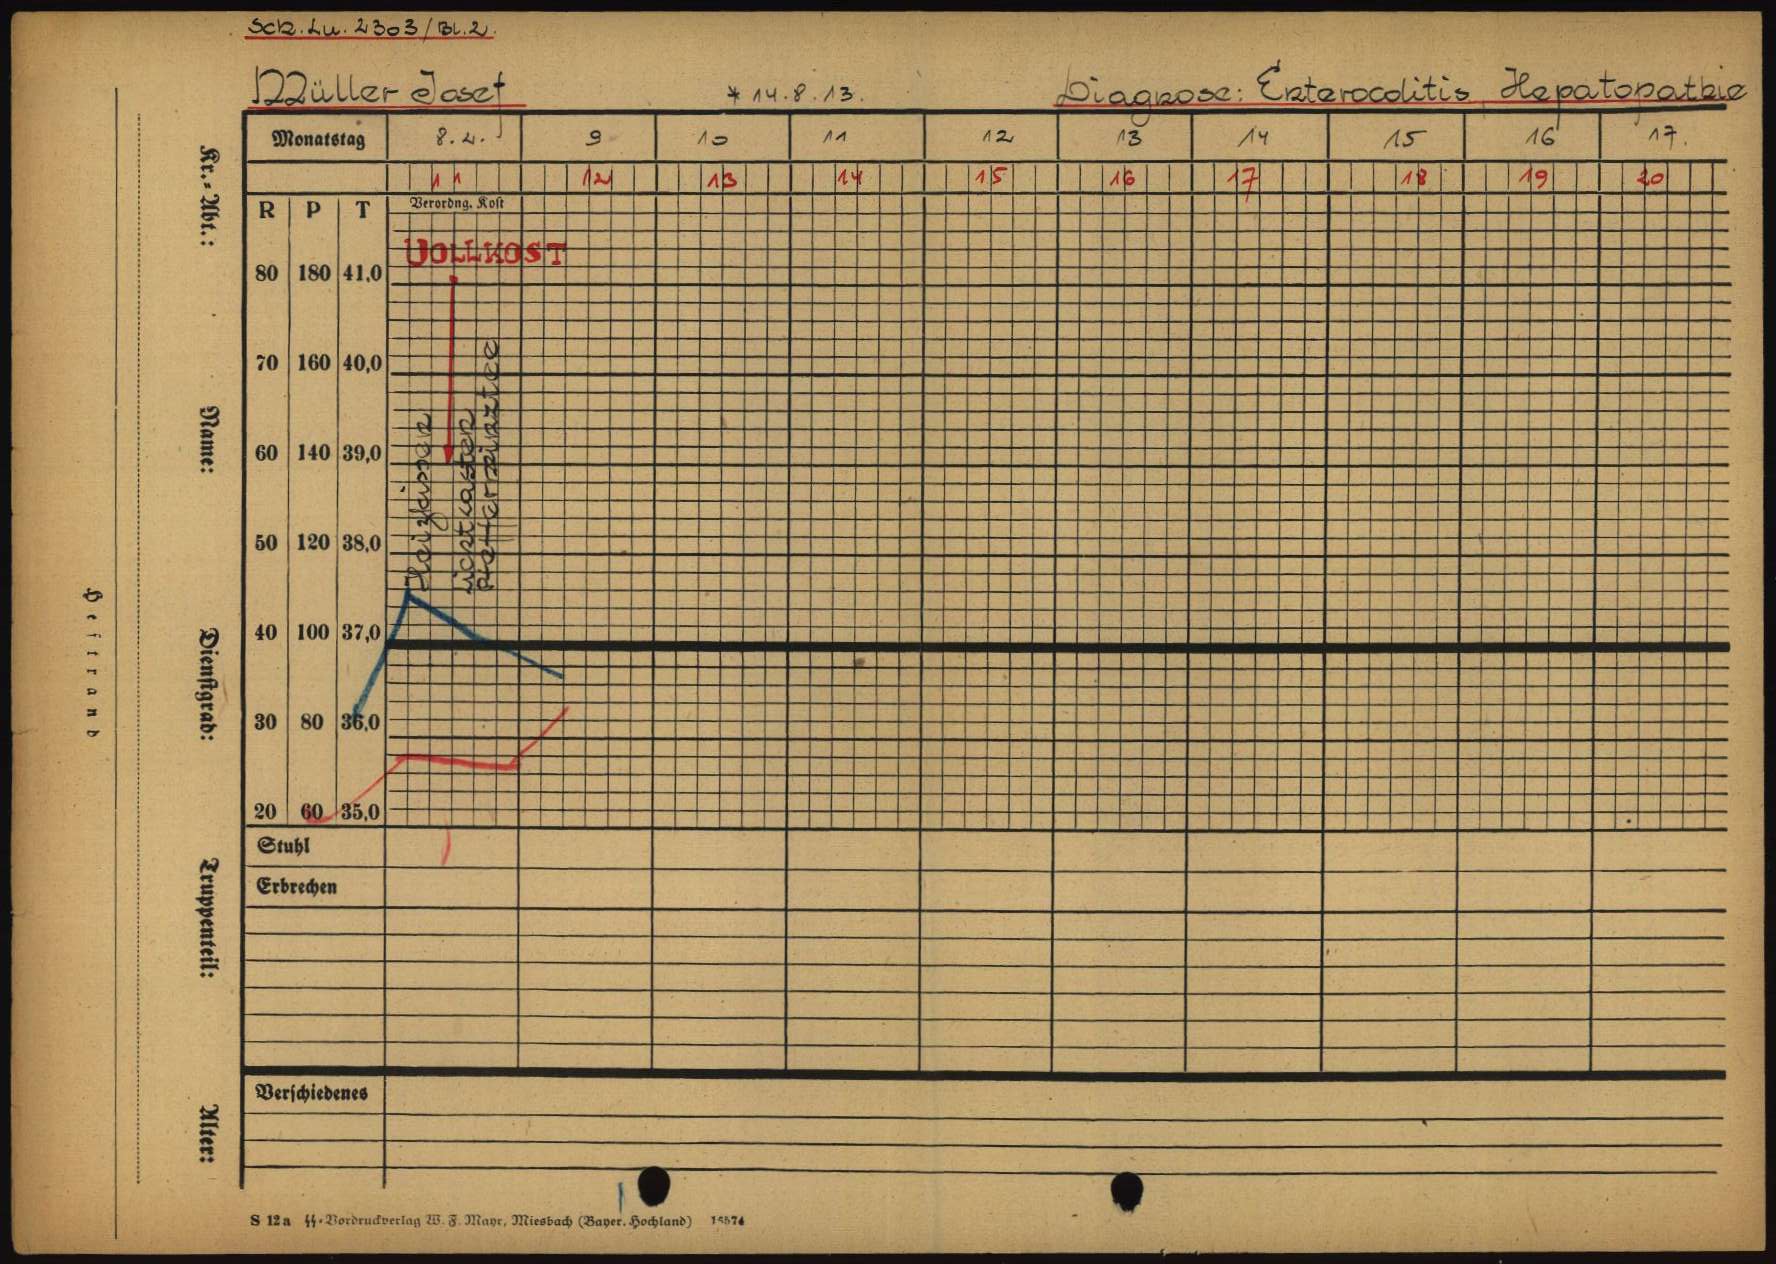 Sch. Lu. 2303/Bl. 2.
Müller Josef * 14.8.13. Diagnose: Enterocolitis, Hepatopathie
Monatstag 8.2. 9 10 11 12 13 14 15 16 17.
11 12 13 14 15 16 17 18 19 20
R P T Verordng. Kost
VOLLKOST
80 180 41,0
70 160 40,0
60 140 39,0
50 120 38,0
40 100 37,0
30 80 36,0
20 60 35,0
Heizkissen
Lichtkasten
Pfefferminztee
Stuhl
Erbrechen
Verschiedenes
S 12a ᛋᛋ-Vordruckverlag W. F. Mayr, Miesbach (Bayer. Hochland)
Kr.-Abt.:
Name:
Dienstgrad:
Truppenteil:
Alter:
Heftrand